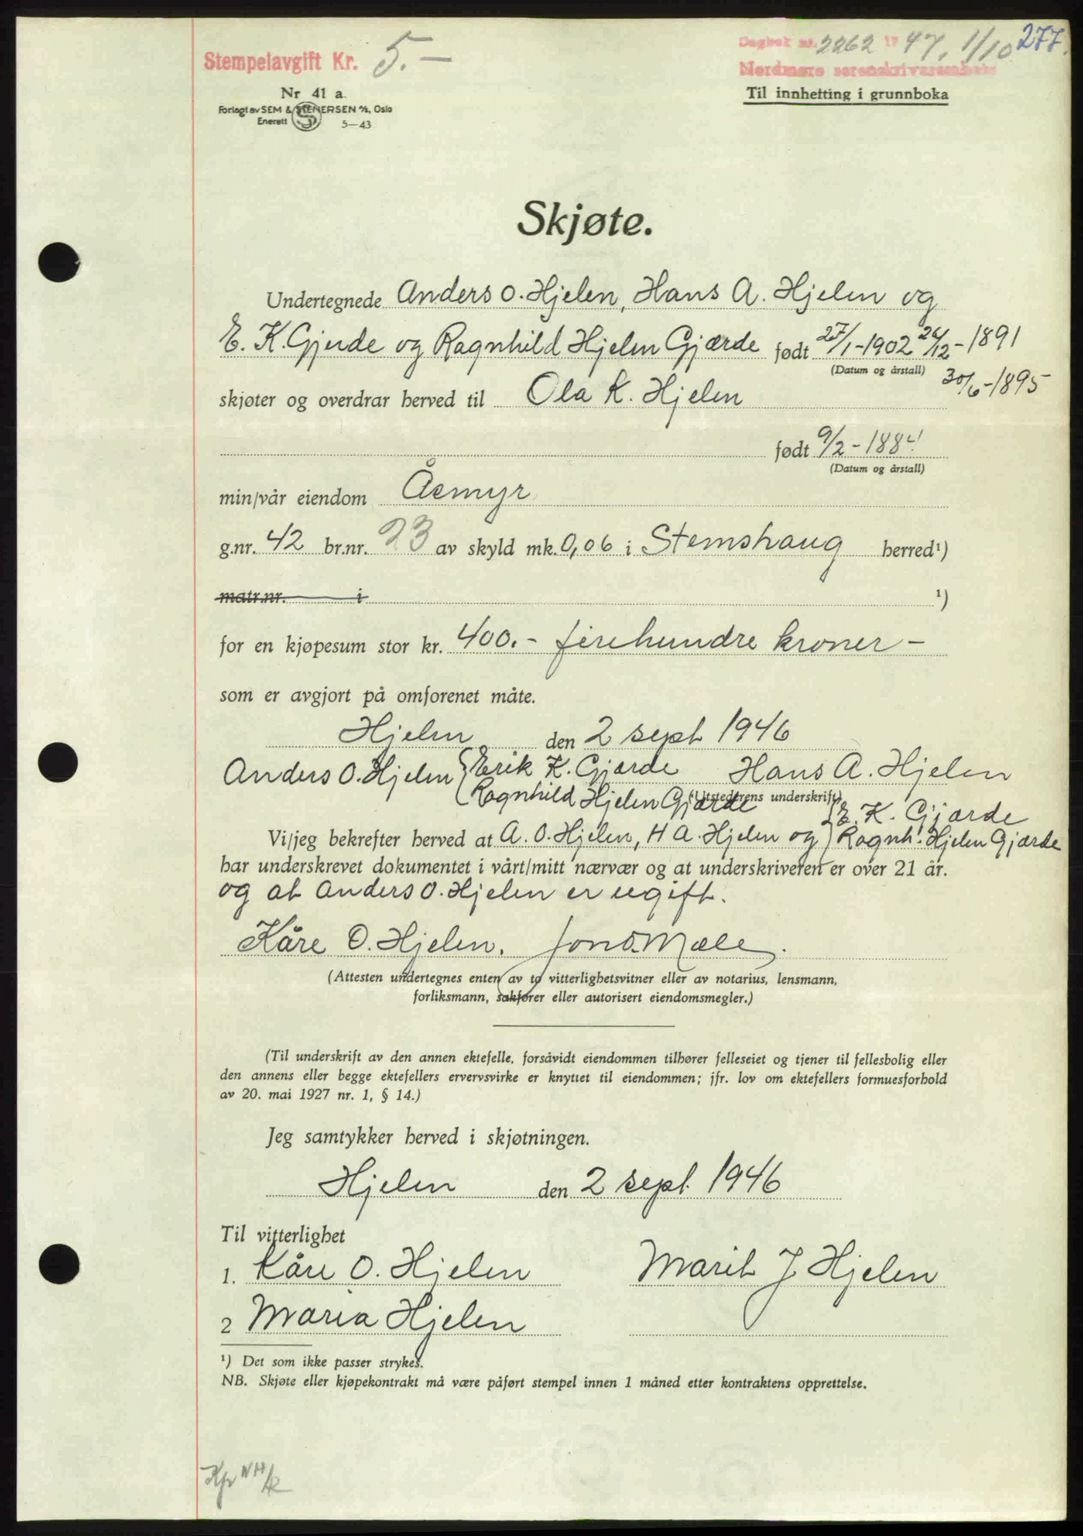 277.
Stempelavgift Kr. 5.-
Dagbok nr. 2262 19 47, 1/10
Nordmøre sorenskriverembete
Til innhefting i grunnboka
Nr 41 a.
Forlagt av SEM & STENERSEN A/S, Oslo
Enerett 5-43
Skjøte.
Undertegnede Anders O. Hjelen, Hans A. Hjelen og
E. K. Gjærde og Ragnhild Hjelen Gjærde født 27/1-1902 24/12-1891
(Datum og årstall) 30/6-1895
skjøter og overdrar herved til Ola K. Hjelen
født 9/2-1884
(Datum og årstall)
min/vår eiendom Åsmyr
g.nr. 42 br.nr. 23 av skyld mk. 0,06 i Stemshaug herred¹)
matr.nr. i ¹)
for en kjøpesum stor kr. 400.- firehundre kroner -
som er avgjort på omforenet måte.
Hjelen den 2 sept 1946
Anders O. Hjelen { Erik K. Gjærde Hans A. Hjelen
Ragnhild Hjelen Gjærde (Utstederens underskrift)
{ E. K. Gjærde
Vi/jeg bekrefter herved at A. O. Hjelen, H A. Hjelen og Ragnh. Hjelen Gjærde
har underskrevet dokumentet i vårt/mitt nærvær og at underskriveren er over 21 år.
og at Anders O. Hjelen er ugift.
Kåre O. Hjelen. Jon O. Mæle.
(Attesten undertegnes enten av to vitterlighetsvitner eller av notarius, lensmann,
forliksmann, sakfører eller autorisert eiendomsmegler.)
(Til underskrift av den annen ektefelle, forsåvidt eiendommen tilhører felleseiet og tjener til fellesbolig eller
den annens eller begge ektefellers ervervsvirke er knyttet til eiendommen; jfr. lov om ektefellers formuesforhold
av 20. mai 1927 nr. 1, § 14.)
Jeg samtykker herved i skjøtningen.
Hjelen den 2 sept. 1946
Til vitterlighet
1. Kåre O. Hjelen Marit J Hjelen
2 Maria Hjelen
¹) Det som ikke passer strykes.
NB. Skjøte eller kjøpekontrakt må være påført stempel innen 1 måned etter kontraktens opprettelse.